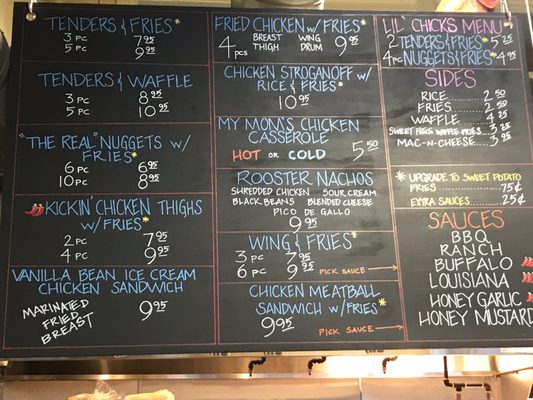 TENDERS & FRIES*
3 PC 7 95
5 PC 9 95
TENDERS & WAFFLE
3 PC 8 95
5 PC 10 95
"THE REAL" NUGGETS W/
FRIES*
6 PC 6 95
10 PC 8 95
KICKIN' CHICKEN THIGHS
W/ FRIES*
2 PC 7 95
4 PC 9 95
VANILLA BEAN ICE CREAM
CHICKEN SANDWICH
MARINATED
FRIED
BREAST
9 95
FRIED CHICKEN W/ FRIES*
4 PCS BREAST WING 9 95
THIGH DRUM
CHICKEN STROGANOFF W/
RICE & FRIES*
10 95
MY MOM'S CHICKEN
CASSEROLE
HOT OR COLD 5 50
ROOSTER NACHOS
SHREDDED CHICKEN SOUR CREAM
BLACK BEANS BLENDED CHEESE
PICO DE GALLO
9 95
WING & FRIES*
3 PC 7 95
6 PC 9 95 PICK SAUCE →
CHICKEN MEATBALL
SANDWICH W/ FRIES*
9 95 PICK SAUCE →
LIL' CHICKS MENU
2 TENDERS & FRIES* 5 25
4 PC NUGGETS & FRIES* 4 95
SIDES
RICE 2 50
FRIES 2 50
WAFFLE 4 25
SWEET POTATO WAFFLE FRIES 3 25
MAC-N-CHEESE 3 95
* UPGRADE TO SWEET POTATO
FRIES 75¢
EXTRA SAUCES 25¢
SAUCES
BBQ
RANCH
BUFFALO
LOUISIANA
HONEY GARLIC
HONEY MUSTARD